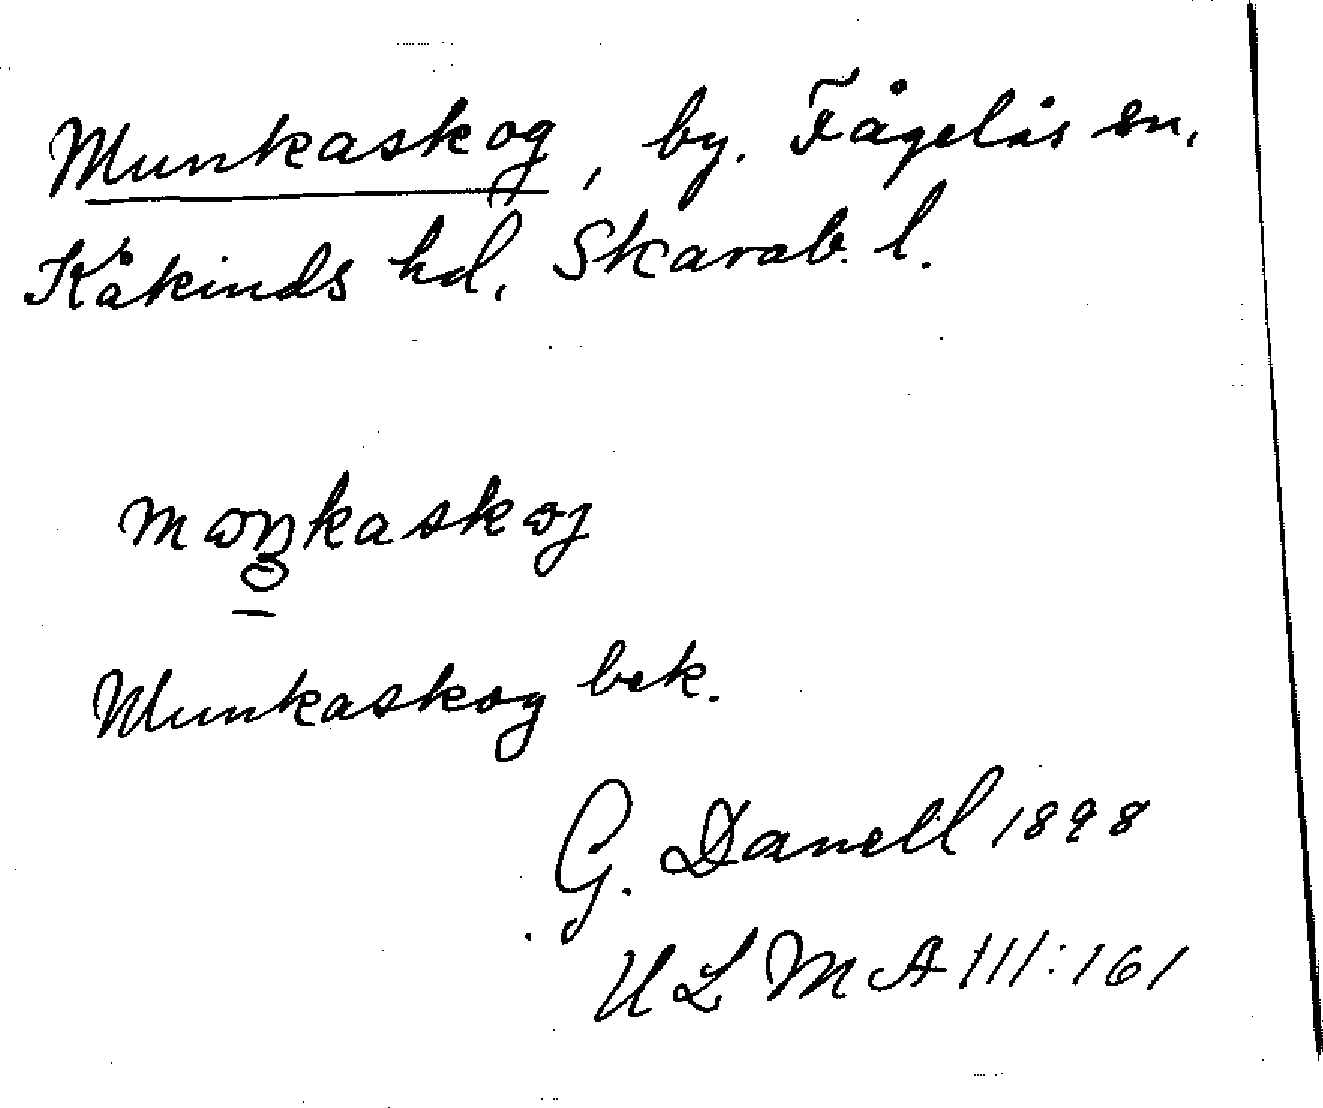 Munkaskog, by. Fågelås sn,
Kåkinds hd, Skarab. l.
Munkaskog bek.
G. Danell 1898
ULMA 111:161